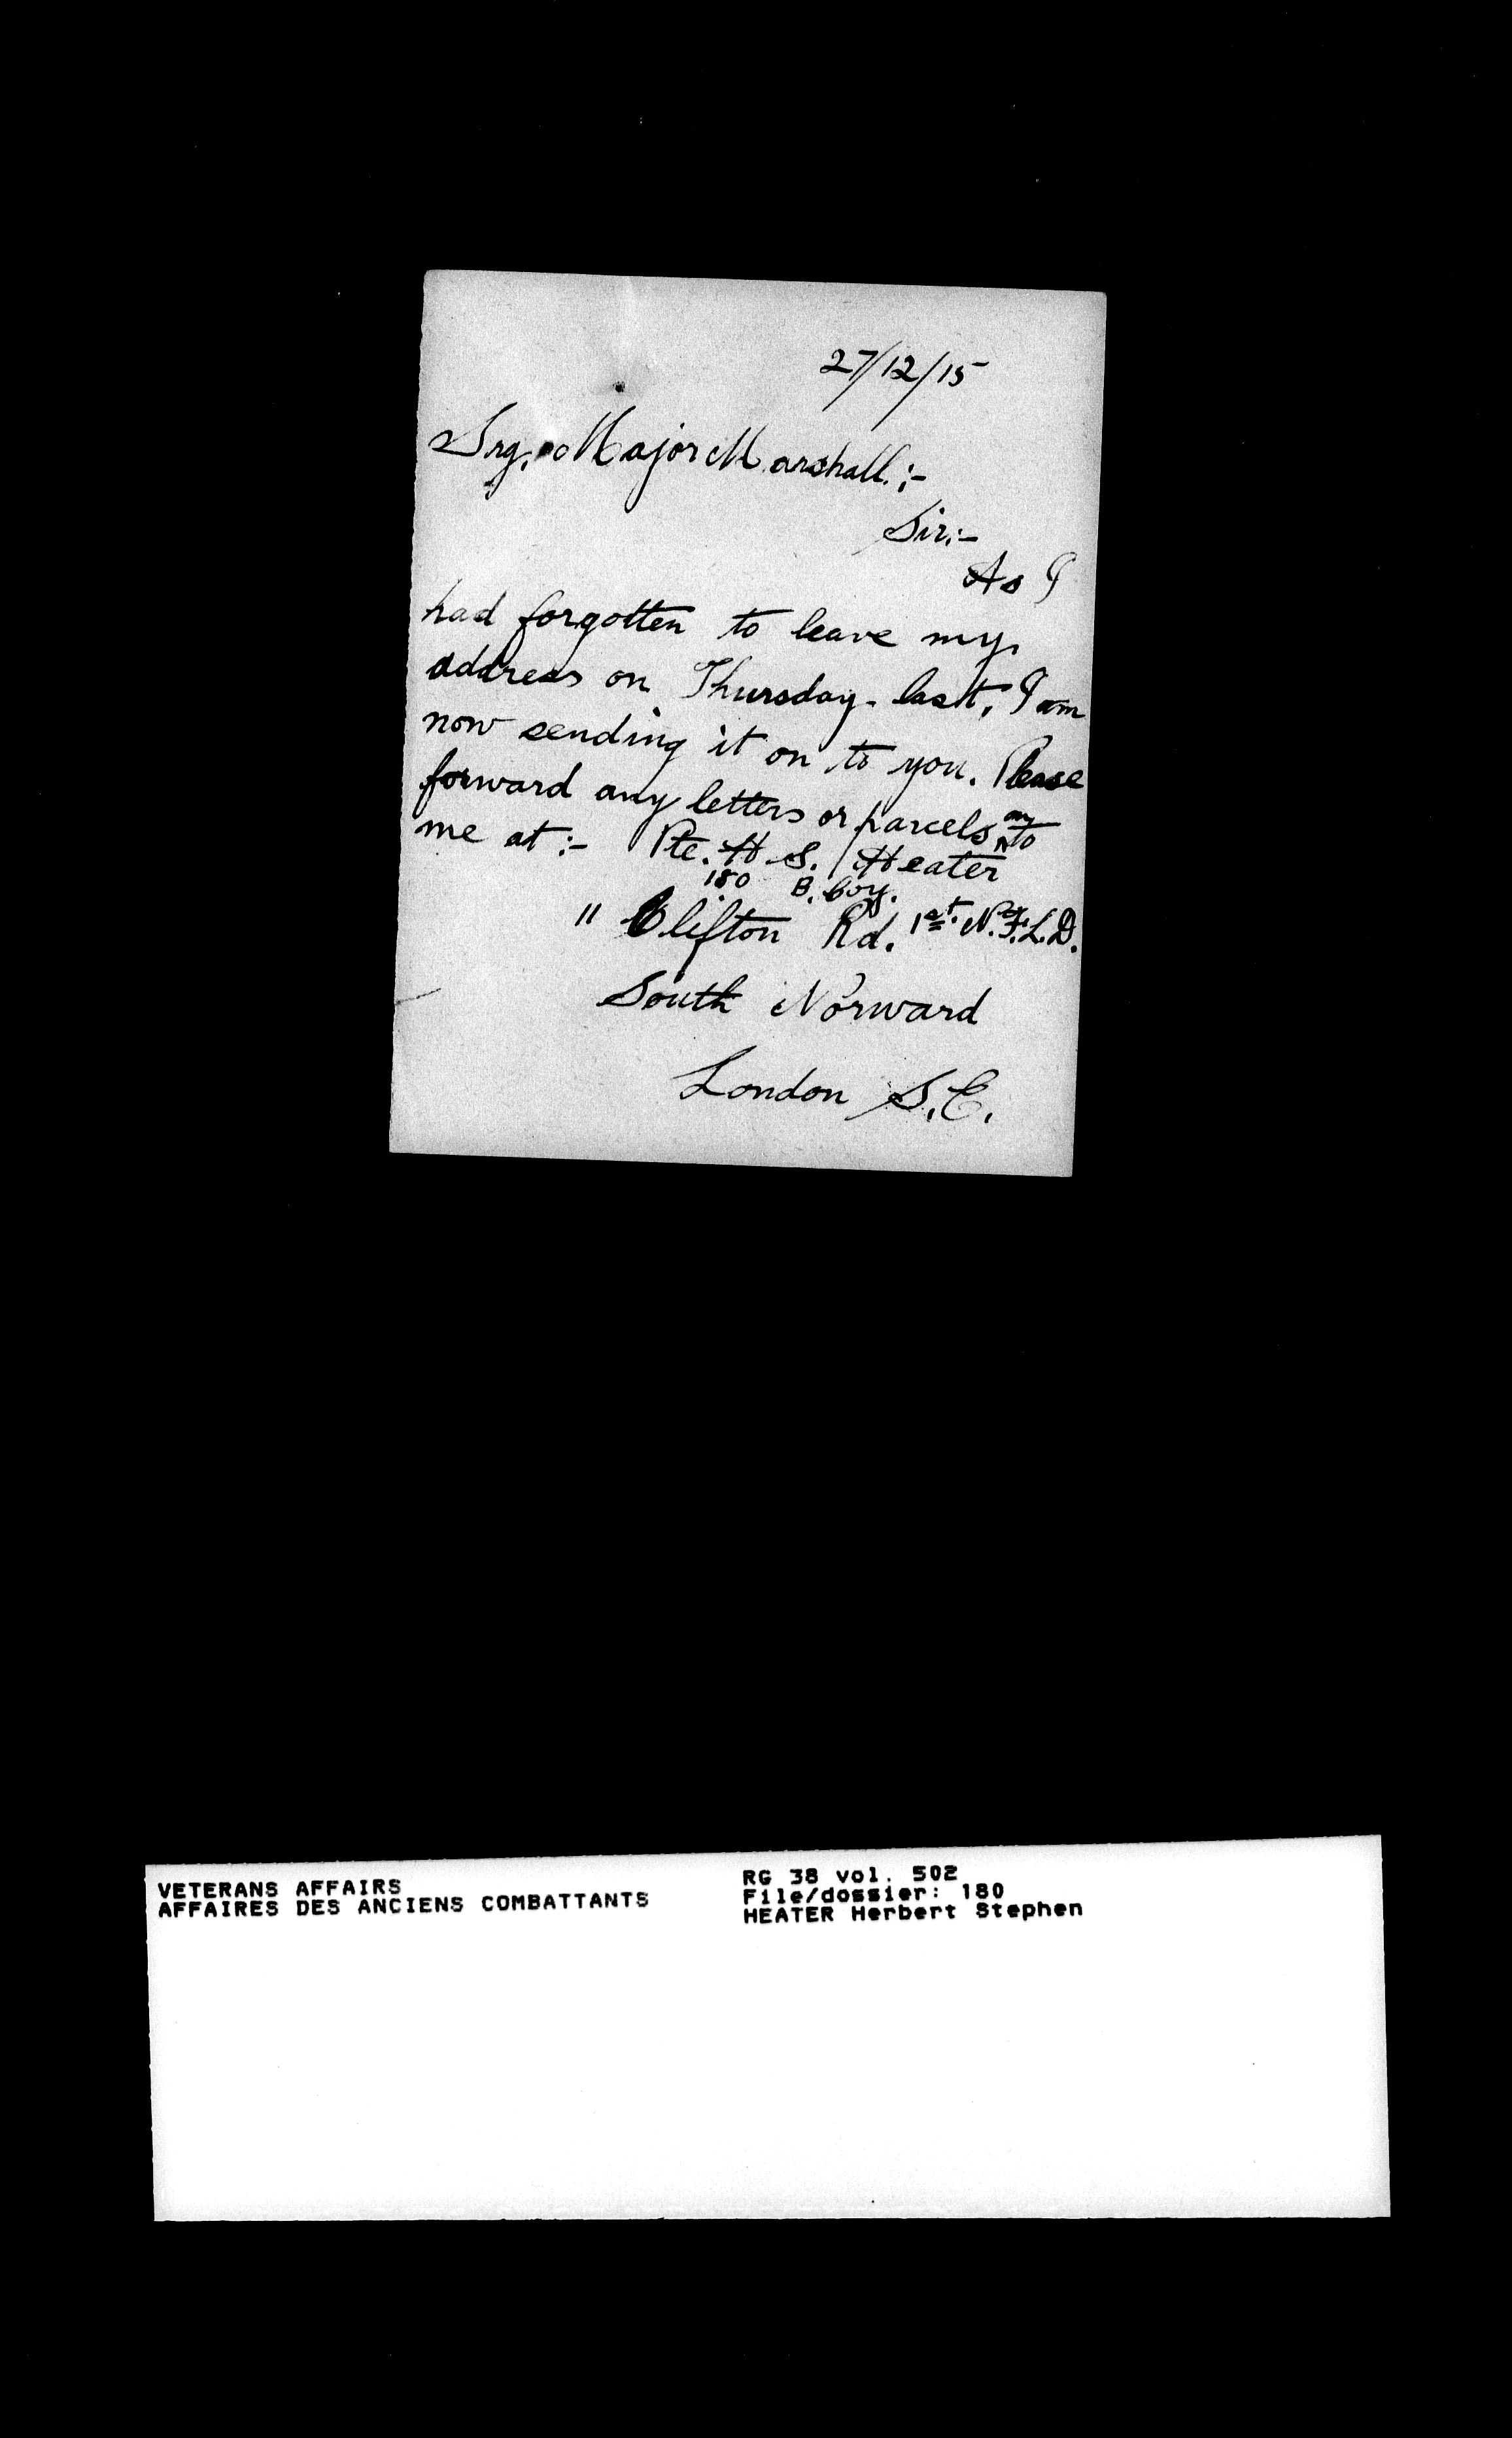 27/12/15
Srg. Major Marshall.:-
Sir:-
As I
had forgotten to leave my
address on Thursday last, I am
now sending it on to you. Please
forward any letters or parcels on to
me at:- Pte. H S. Heater
180 B. Coy.
11 Clifton Rd. 1st. N.F.L.D.
South Norward
London S.E.
VETERANS AFFAIRS
AFFAIRES DES ANCIENS COMBATTANTS
RG 38 vol. 502
File/dossier: 180
HEATER Herbert Stephen